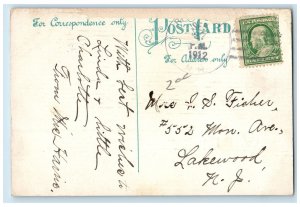 For Correspondence only.
POSTCARD
For Address only
P.M.
1912
20c
With best wishes to
Linda & little
Charlotte
From the Farno.
Mrs L. S. Fisher,
#552 Mon. Ave.,
Lakewood
N. J.